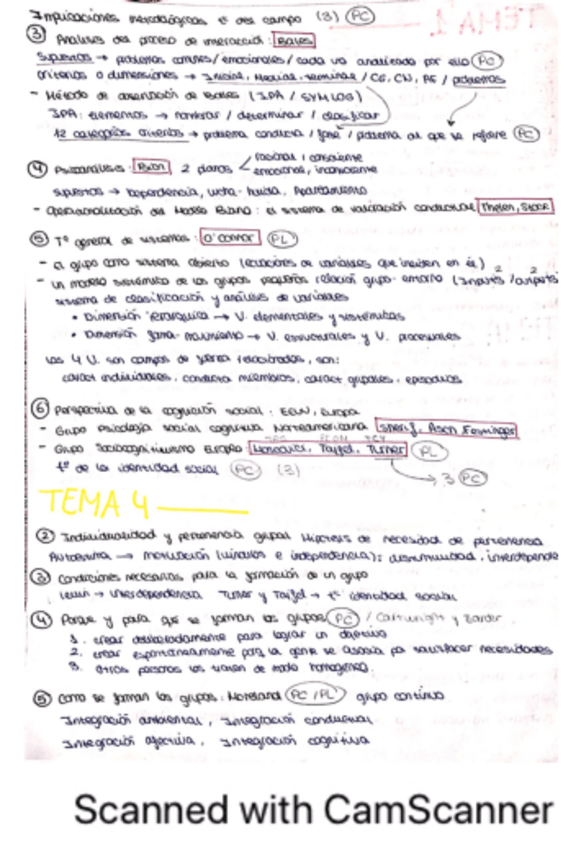 Implicaciones metodológicas tª del campo (3) (PC)
③ Análisis del proceso de interacción: Bales
Supuestos → problemas comunes/emocionales/cada uno analizado por ello (PC)
criterios o dimensiones → Inicial, Medial, terminal / CG, CN, AG / problemas
- Método de observación de Bales (IPA / SYMLOG)
IPA: elementos → nombrar / determinar / clasificar
12 categorías criterios → problema conducta / fase / problema al que se refiere (PC)
④ Psicoanálisis: Bion 2 planos
racional, consciente
emocional, inconsciente
supuestos → Dependencia, lucha-huida, Apareamiento
- Operacionalización del Modelo Biano: el sistema de valoración conductual Thelen, Stock
⑤ Tª general de sistemas: O'Connor (PL)
- el grupo como sistema abierto (ecuaciones de variables que inciden en él)
- un modelo sistémico de los grupos pequeños relación grupo-entorno (2 inputs / 2 outputs
sistema de clasificación y análisis de variables
• Dimensión jerárquica → V. elementales y sistémicas
• Dimensión forma-movimiento → V. estructurales y V. procesuales
Las 4 V. son campos de fuerza relacionados, son:
caract individuales, conducta miembros, caract grupales, episodios
⑥ Perspectiva de la cognición social: EEUU, Europa
- Grupo psicología social cognitiva Norteamericana Sherif, Asch Festinger
- Grupo Sociocognitivismo Europeo Moscovici, Tajfel, Turner (PL)
tª de la identidad social (PC) (3) → 3 (PC)
TEMA 4
② Individualidad y pertenencia grupal Hipótesis de necesidad de pertenencia
Autoestima → motivación (vínculos e independencia): disimilitud, interdepende
③ Condiciones necesarias para la formación de un grupo
Lewin → interdependencia Turner y Tajfel → tª identidad social
④ Porque y para qué se forman los grupos (PC) / Cartwright y Zander
1. crear deliberadamente para lograr un objetivo
2. crear espontáneamente para la gente se asocia pa satisfacer necesidades
3. otras personas los tratan de modo homogéneo.
⑤ Como se forman los grupos: Moreland (PC/PL) grupo continuo
Integración ambiental, Integración conductual
Integración afectiva, Integración cognitiva
Scanned with CamScanner